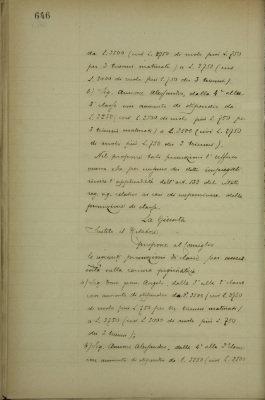 646
da L. 3500 (cioè L. 2750 di ruolo più L. 750
per 3 trienni maturati) a L. 3750 (cioè
L. 3000 di ruolo più L. 750 dei 3 trienni).
b) Sig. Aurore Alejandro, dalla 4ª alla
3ª classe con aumento di stipendio da
L. 3250 (cioè L. 2500 di ruolo più L. 750 per
3 trienni maturati) a L. 3500 (cioè L. 2750
di ruolo più L. 750 dei 3 trienni).
Nel proporre tali promozioni l'ufficio
osserva che per nessuno dei detti impiegati
ricorre l'applicabilità dell'art. del
reg. relativo ai casi di sospensione della
promozione di classe.
La Giunta
Sentito il Relatore
propone al Consiglio
le seguenti promozioni di classe, per
nella carriera
a) Sig. Angelo dalla 3ª alla 2ª classe
con aumento di stipendio da L. 3500 (cioè L. 2750
di ruolo più L. 750 per tre trienni maturati)
a L. 3750 (cioè L. 3000 di ruolo più L. 750
dei 3 trienni);
b) Sig. Aurore Alejandro, dalla 4ª alla 3ª classe
con aumento di stipendio da L. 3250 (cioè L. 2500